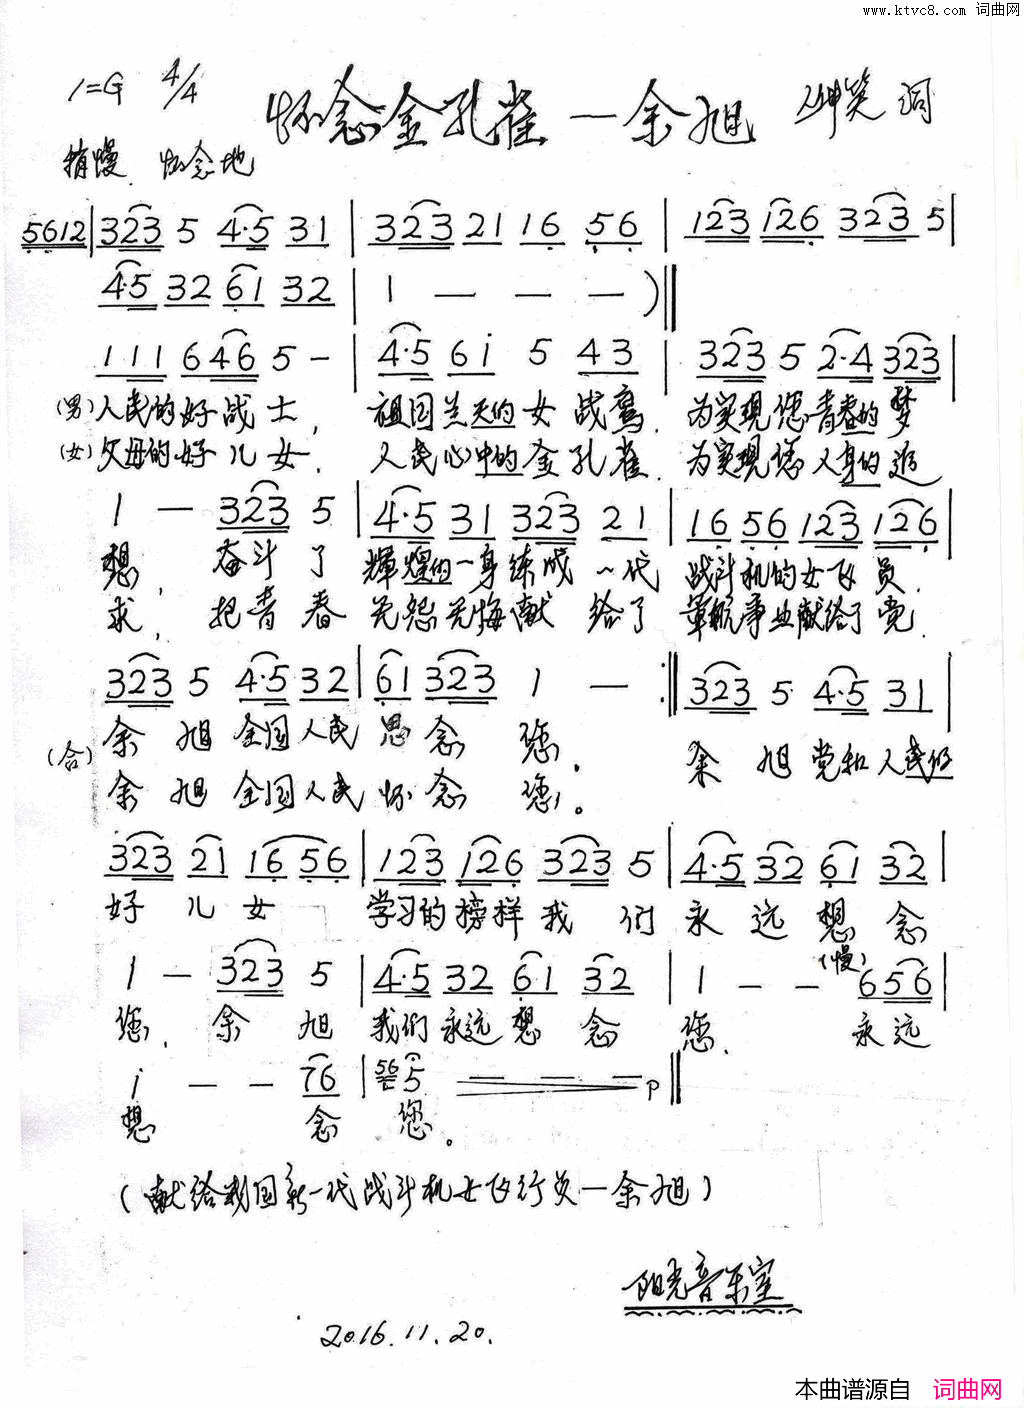 www.ktvc8.com 词曲网
1=G 4/4
怀念金孔雀—余旭
坤笑 词
稍慢 怀念地
5612 | 323 5 4·5 31 | 323 21 16 56 | 123 126 323 5 |
4·5 32 61 32 | 1 — — — ) ‖
111 646 5 — | 4·5 6i 5 43 | 323 5 2·4 323 |
(男) 人民的好战士, 祖国兰天的女战鹰. 为实现您青春的梦
(女) 父母的好儿女. 人民心中的金孔雀. 为实现您人身的追
1 — 323 5 | 4·5 31 323 21 | 16 56 123 126 |
想, 奋斗了 辉煌的一身练成一代 战斗机的女飞员.
求, 把青春 无怨无悔献给了 军航事业献给了党.
323 5 4·5 32 | 61 323 1 — :‖ 323 5 4·5 31 |
(合) 余旭全国人民思念您. 余旭党和人民的
余旭全国人民怀念您。
323 21 16 56 | 123 126 323 5 | 4·5 32 61 32 |
好儿女 学习的榜样我们永远想念
1 — 323 5 | 4·5 32 61 32 | 1 — — (慢) 656 |
您. 余旭 我们永远想念 您. 永远
i — — 76 | 56 5 — — — p ‖
想 念 您。
(献给我国新一代战斗机女飞行员—余旭)
阳光音乐室
2016.11.20.
本曲谱源自 词曲网